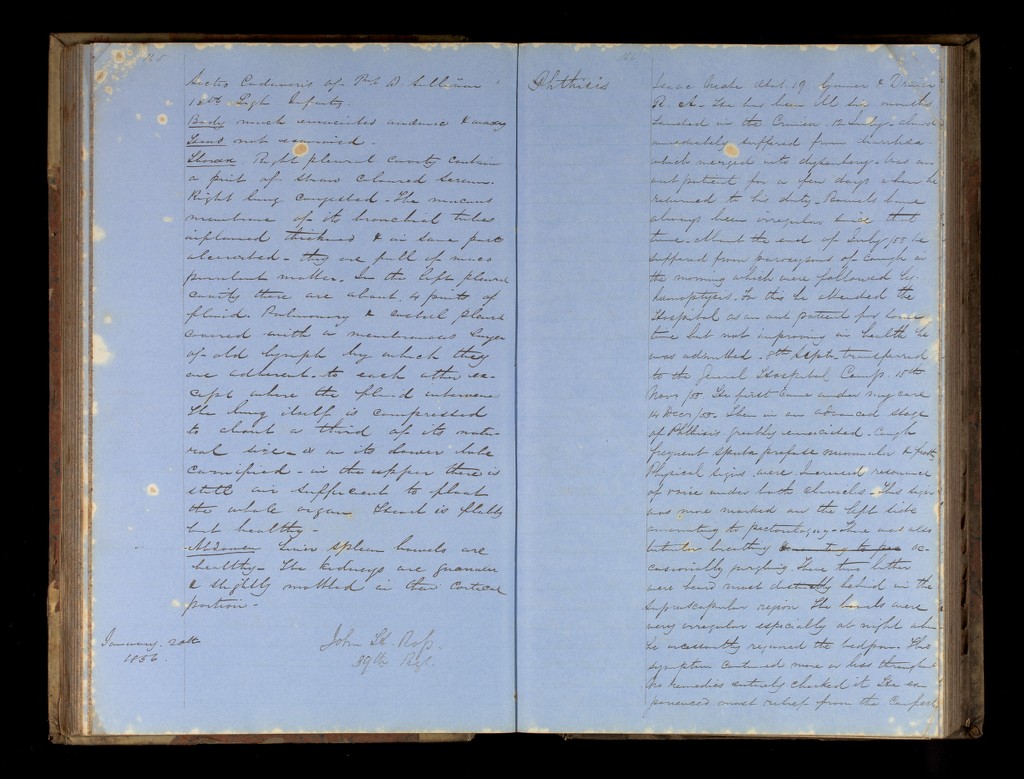 Sectio Cadaveris of Pvt D Sullivan
13th Light Infantry.
Body much emaciated anaemic & waxy
Head not examined.
Thorax. Right pleural cavity contains
a pint of straw coloured serum.
Right lung congested. The mucous
membrane of its bronchial tubes
inflamed thickened & in some parts
ulcerated - they are full of muco
purulent matter. In the left pleural
cavity there are about 4 pints of
fluid. Pulmonary & costal pleura
covered with a membranous layer
of old lymph by which they
are adherent to each other ex-
cept where the fluid intervenes
The lung itself is compressed
to about a third of its natu-
ral size - & in its lower lobe
carnified - in the upper there is
still air sufficient to float
the whole organ. Heart is flabby
but healthy -
Abdomen Liver spleen bowels are
healthy - The kidneys are granular
& slightly mottled in their cortical
portion -
January 20th
1856.
John H. Ross.
39th Rgt.
Phthisis
Isaac aet. 19. Gunner & Driver
R. A. He has been ill six months
Landed in the Crimea 12 July - almost
immediately suffered from diarrhoea
which merged into dysentery - was an
out patient for a few days when he
returned to his duty - Bowels have
always been irregular since that
time. About the end of July /55 he
suffered from paroxysms of cough in
the morning which were followed by
haemoptysis. For this he attended the
Hospital as an out patient for some
time but not improving in health he
was admitted 8th Septr. transferred
to the General Hospital Camp 15th
Novr /55. He first came under my care
14 Decr /55. Then in an advanced stage
of Phthisis greatly emaciated. Cough
frequent sputa profuse nummular & frothy
Physical signs were Increased resonance
of voice under both clavicles - This sign
was more marked on the left side
amounting to pectoriloquy - There was also
tubular breathing amounting to pec oc-
casionally gurgling. These two latter
were heard most distinctly behind in the
supra scapular region The bowels were
very irregular especially at night when
he incessantly required the bedpan. This
symptom continued more or less throughout
No remedies entirely checked it. He ex-
perienced most relief from the